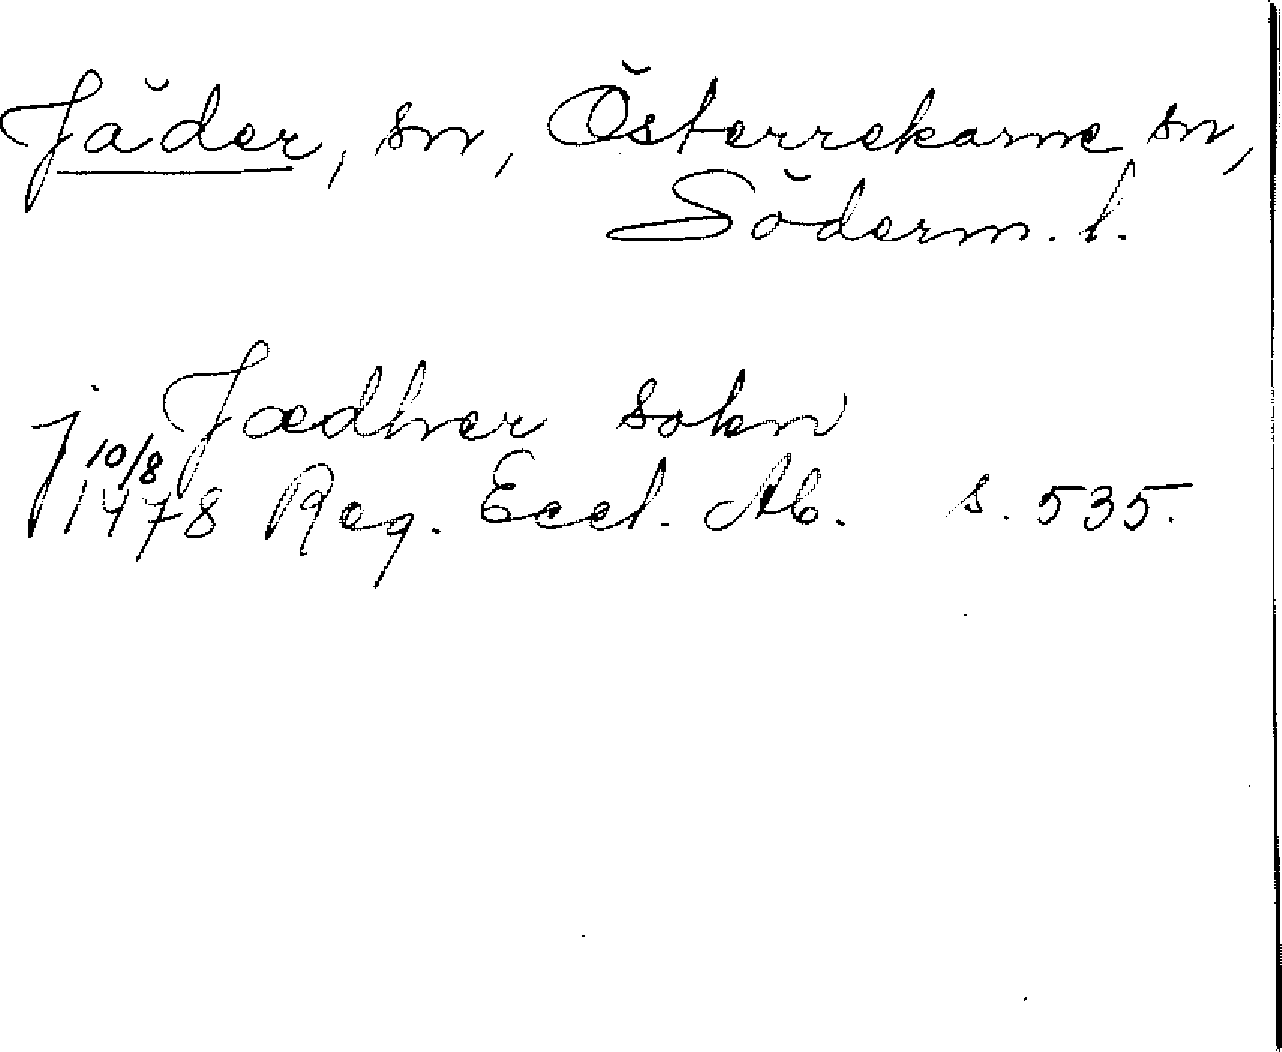 Jäder, sn, Österrekarne sn,
Söderm. l.
j Jædhver sokn
10/8
1478 Reg. Eccl. Ab. s. 535.